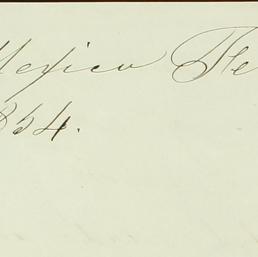 Mexico Fe
854.